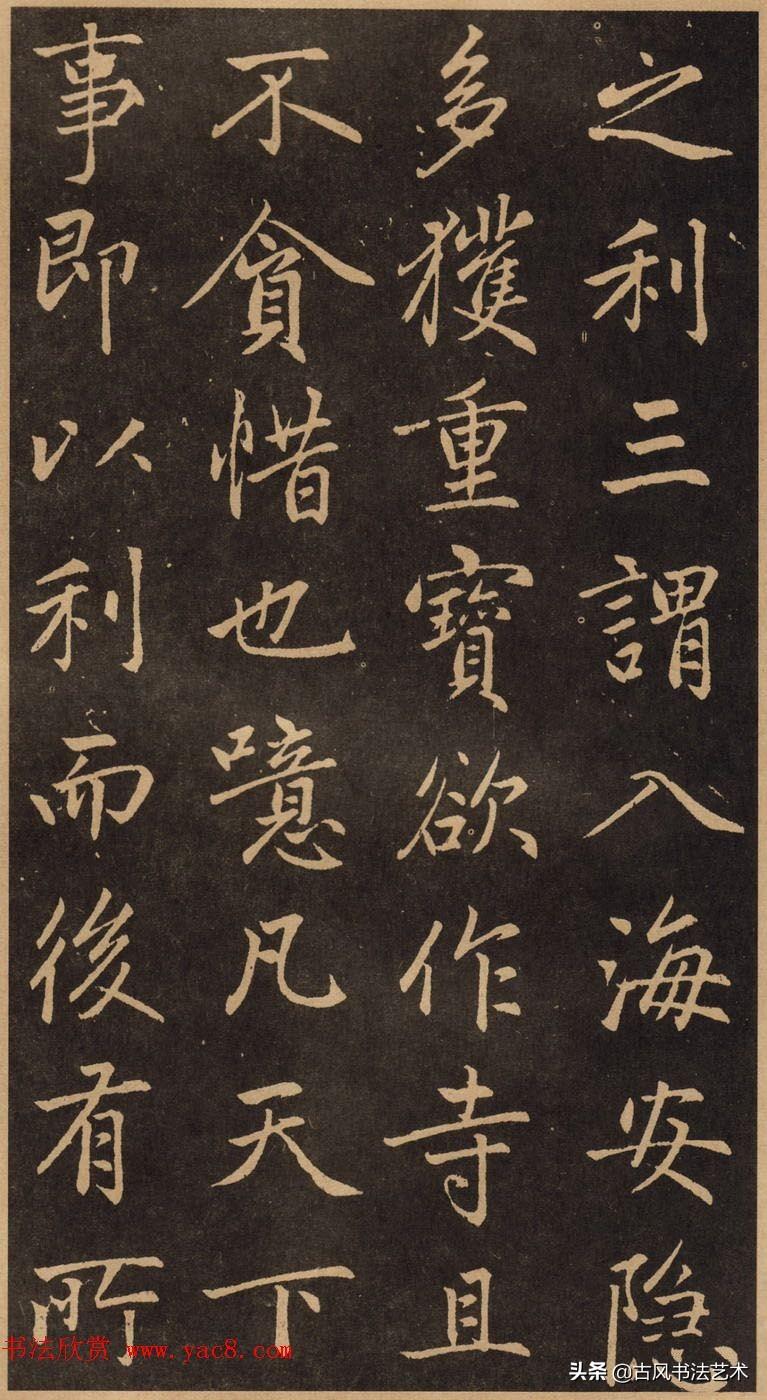 之利三謂入海安隐
多獲重寶欲作寺且
不貪惜也噫凡天下
事即以利而後有所
书法欣赏 www.yac8.com
头条 @古风书法艺术